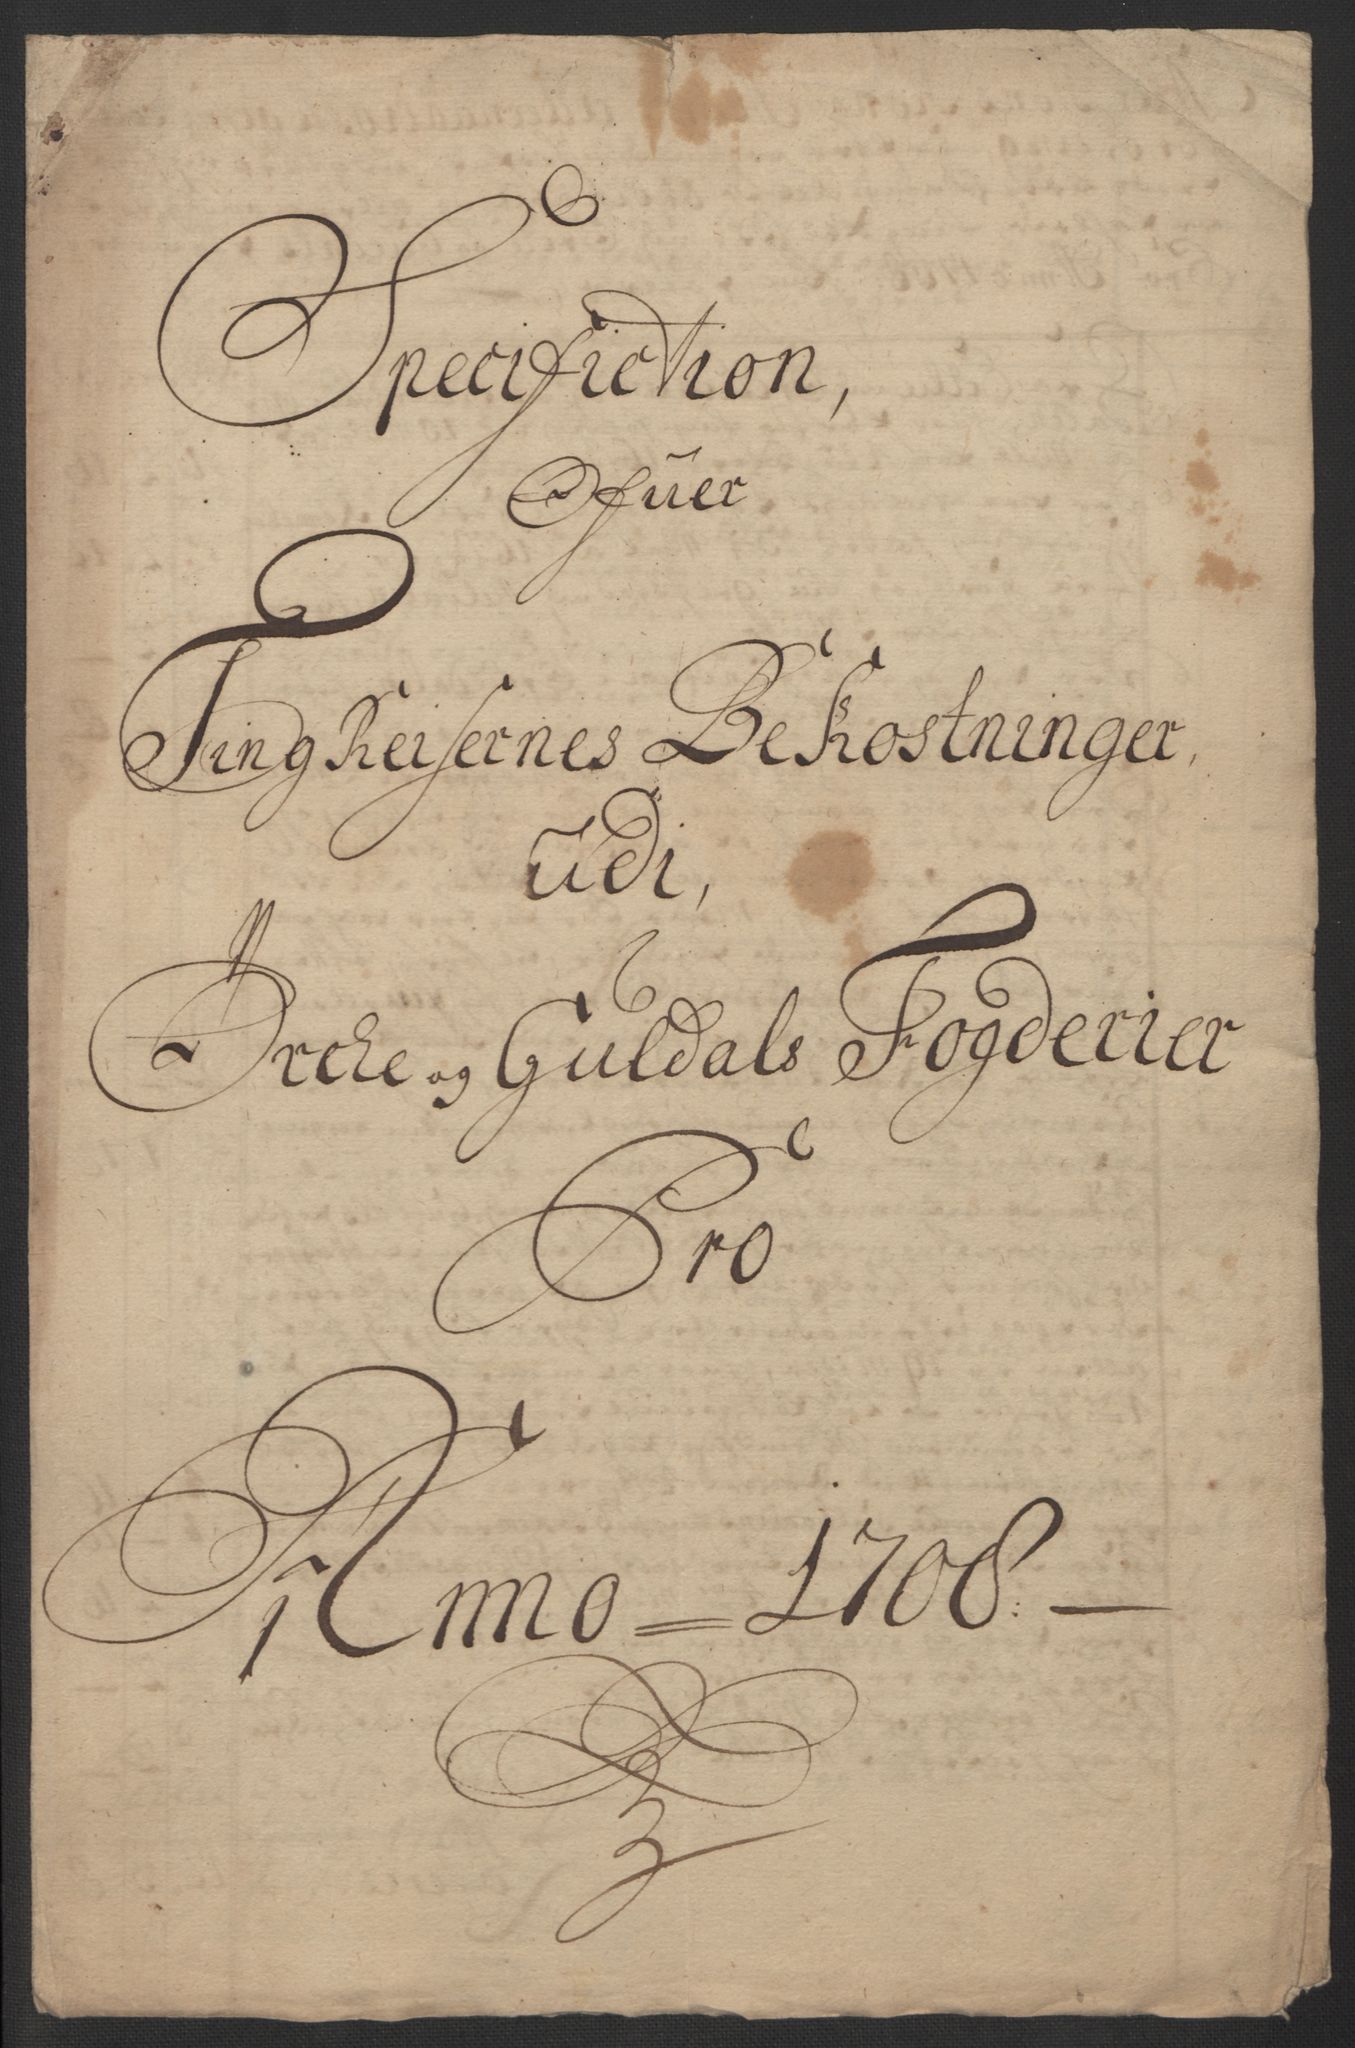 Specifiction,
Ofuer
Ting Reisernes Bekostninger,
udi,
Orche og Guldals Fogderier
Pro
Anno = 1708. —